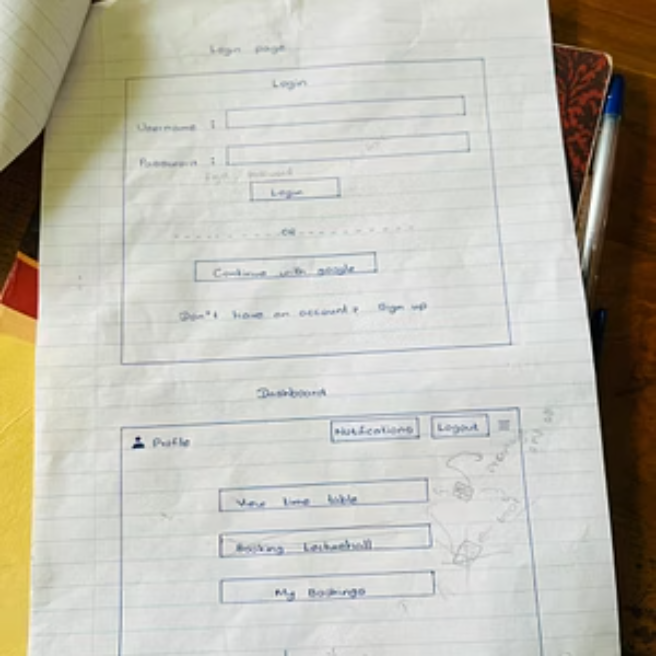 Login page
Login
Username :
Password :
Login
OR
Continue with google
Don't have an account? Sign up
Dashboard
Profile Notifications Logout
View time table
Booking Lecturehall
My Bookings